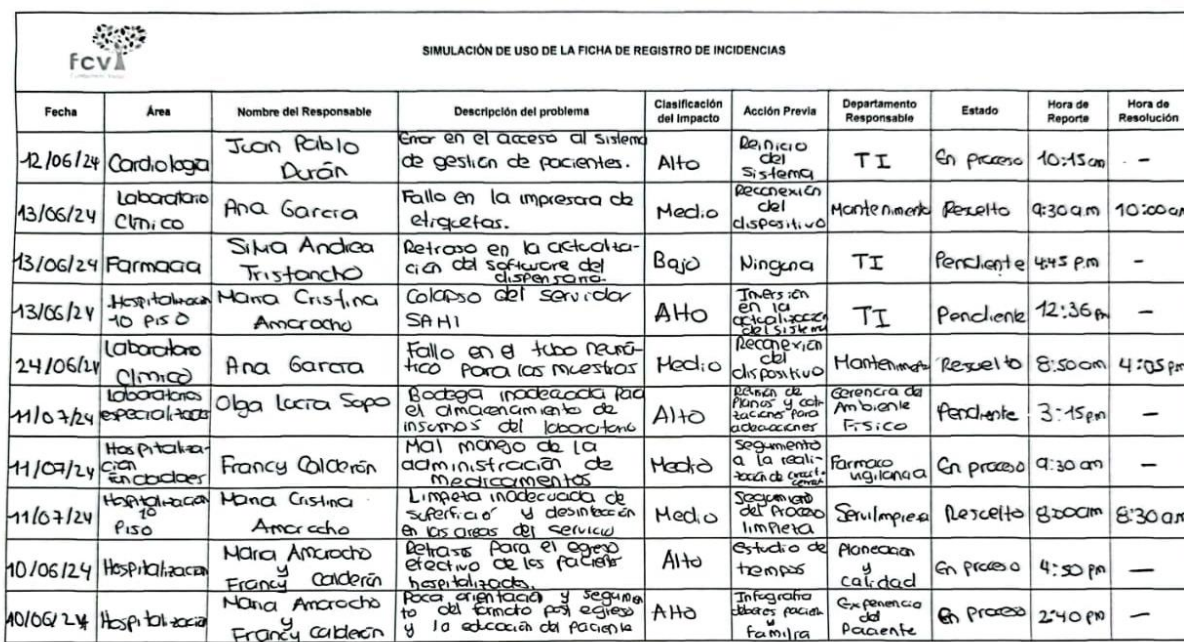 fcv
SIMULACIÓN DE USO DE LA FICHA DE REGISTRO DE INCIDENCIAS
Fecha Área Nombre del Responsable Descripción del problema Clasificación del Impacto Acción Previa Departamento Responsable Estado Hora de Reporte Hora de Resolución
12/06/24 Cardiologia Juan Pablo Durán Error en el acceso al sistema de gestión de pacientes. Alto Reinicio del Sistema TI En proceso 10:15am -
13/06/24 Laboratorio Clínico Ana Garcia Fallo en la impresora de etiquetas. Medio Reconexión del dispositivo Mantenimento Resuelto 9:30am 10:00am
13/06/24 Farmacia Silvia Andrea Tristancho Retraso en la del software del dispensario. Bajo Ninguna TI Pendiente 4:45 pm -
13/06/24 Hospitalización 10 Piso Maria Cristina Amarocho Colapso del servidor SAHI Alto Inversión en la actualización del sistema TI Pendiente 12:36pm -
24/06/24 Laboratorio Clínico Ana Garcia Fallo en el tubo neumático para las muestras Medio Reconexión del dispositivo Resuelto 8:50am 4:05pm
11/07/24 Laboratorios especializados Olga Lucia Bodega inadecuada para el almacenamiento de insumos del laboratorio Alto de Planos y cotizaciones para adecuaciones Gerencia de Ambiente Fisico Pendiente 3:15pm -
11/07/24 Hospitalización Francy Calderón Mal manejo de la administración de medicamentos Medio Seguimento a la Farmaco vigilancia En proceso 9:30am -
11/07/24 Hospitalización 10 Piso Maria Cristina Amarocho Limpieza inadecuada de superficio y desinfección en las areas del servicio Medio Seguimiento del Proceso limpieza Resuelto 8:00am 8:30am
10/06/24 Hospitalización Maria Amarocho y Francy Calderón Retrasos para el egreso efectivo de los paciente hospitalizado. Alto Estudio de tiempos Planeacion y calidad En proceso 4:50 pm -
10/06/24 Hospitalización Maria Amarocho y Francy Calderón Poca orientación y del formato post egreso y la educación del paciente Alto Infografia deberes y familia Experiencia del Paciente En proceso 2:40 pm -